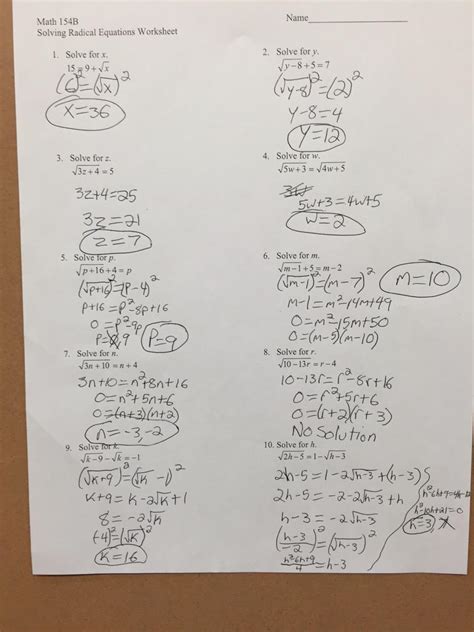 Math 154B
Name
Solving Radical Equations Worksheet
1. Solve for x.
15 = 9 + √x
(6)² = (√x)²
x = 36
2. Solve for y.
√y−8 + 5 = 7
(√y-8)² = (2)²
y-8 = 4
y = 12
3. Solve for z.
√3z + 4 = 5
3z+4 = 25
3z = 21
z = 7
4. Solve for w.
√5w+3 = √4w+5
5w+3 = 4w+5
w = 2
5. Solve for p.
√p+16 + 4 = p
(√p+16)² = (p-4)²
p+16 = p²-8p+16
0 = p²-9p
p = 0,9
p=9
6. Solve for m.
√m−1 + 5 = m−2
(√m-1)² = (m-7)²
m-1 = m²-14m+49
0 = m²-15m+50
0 = (m-5)(m-10)
m=10
7. Solve for n.
√3n+10 = n+4
3n+10 = n²+8n+16
0 = n²+5n+6
0 = (n+3)(n+2)
n = -3, -2
8. Solve for r.
√10−13r = r−4
10-13r = r²-8r+16
0 = r²+5r+6
0 = (r+2)(r+3)
No Solution
9. Solve for k.
√k−9 − √k = −1
(√k+9)² = (√k - 1)²
k+9 = k-2√k+1
8 = -2√k
(-4)² = (√k)²
k = 16
10. Solve for h.
√2h−5 = 1−√h−3
2h-5 = 1-2√h-3 + (h-3)
2h-5 = -2-2√h-3 + h
h-3 = -2√h-3
(h-3/-2)² = (√h-3)²
h²-6h+9/4 = h-3
h²-6h+9=4h-12
h²-10h+21=0
h=3,